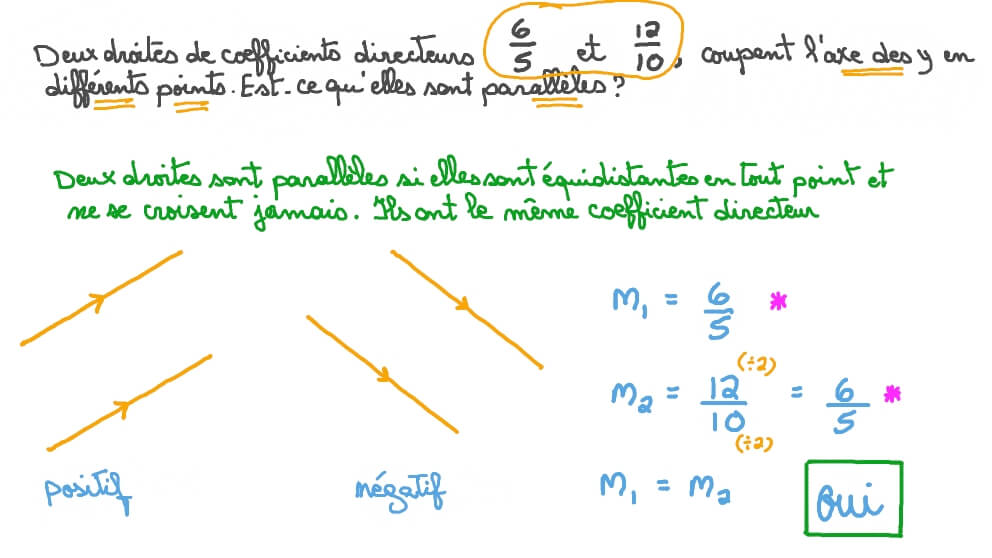 Deux droites de coefficients directeurs 6/5 et 12/10, coupent l'axe des y en
différents points. Est-ce qu'elles sont parallèles ?
Deux droites sont parallèles si elles sont équidistantes en tout point et
ne se croisent jamais. Ils ont le même coefficient directeur
m₁ = 6/5 *
(÷2)
m₂ = 12/10 = 6/5 *
(÷2)
positif
négatif
m₁ = m₂
oui